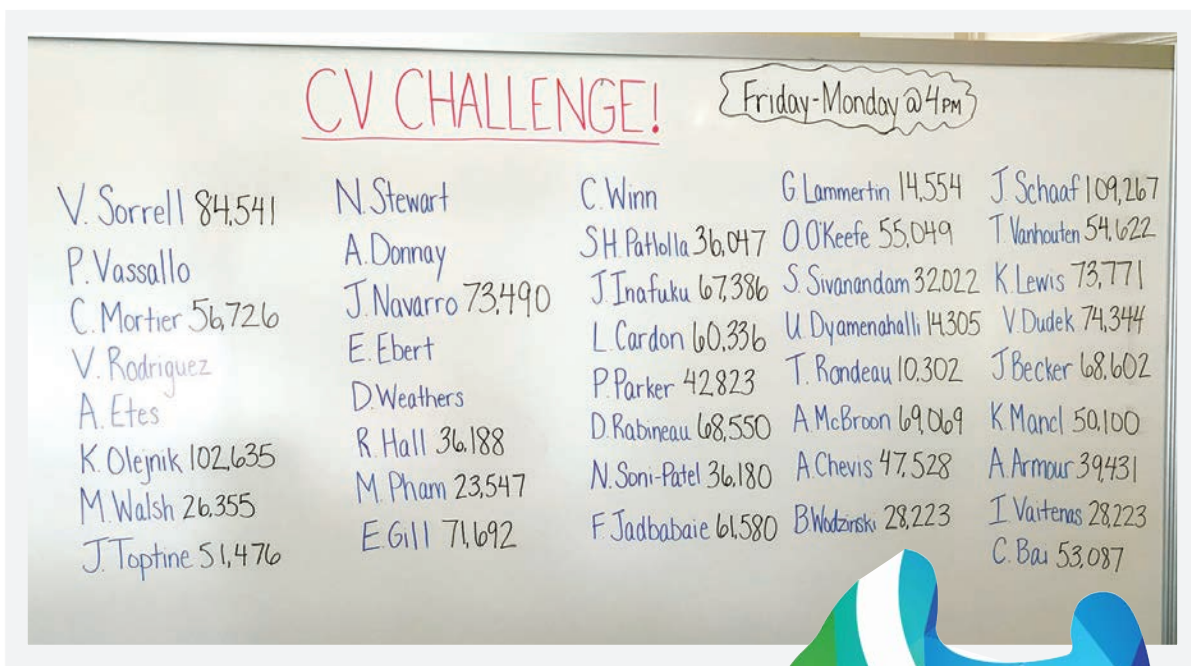 CV CHALLENGE!
Friday-Monday @ 4PM
V. Sorrell 84,541
P. Vassallo
C. Mortier 56,726
V. Rodriguez
A. Etes
K. Olejnik 102,635
M. Walsh 26,355
J. Toptine 51,476
N. Stewart
A. Donnay
J. Navarro 73,490
E. Ebert
D. Weathers
R. Hall 36,188
M. Pham 23,547
E. Gill 71,692
C. Winn
SH. Patlolla 36,047
J. Inafuku 67,386
L. Cardon 60,336
P. Parker 42823
D. Rabineau 68,550
N. Soni-Patel 36,180
F. Jadbabaie 61,580
G. Lammertin 14,554
O. O'Keefe 55,049
S. Sivanandam 32,022
U. Dyamenahalli 14,305
T. Rondeau 10,302
A. McBroon 69,069
A. Chevis 47,528
B. Wodzinski 28,223
J. Schaaf 109,267
T. Vanhouten 54,622
K. Lewis 73,771
V. Dudek 74,344
J. Becker 68,602
K. Mancl 50,100
A. Armour 39,431
I. Vaitenas 28,223
C. Bai 53,087